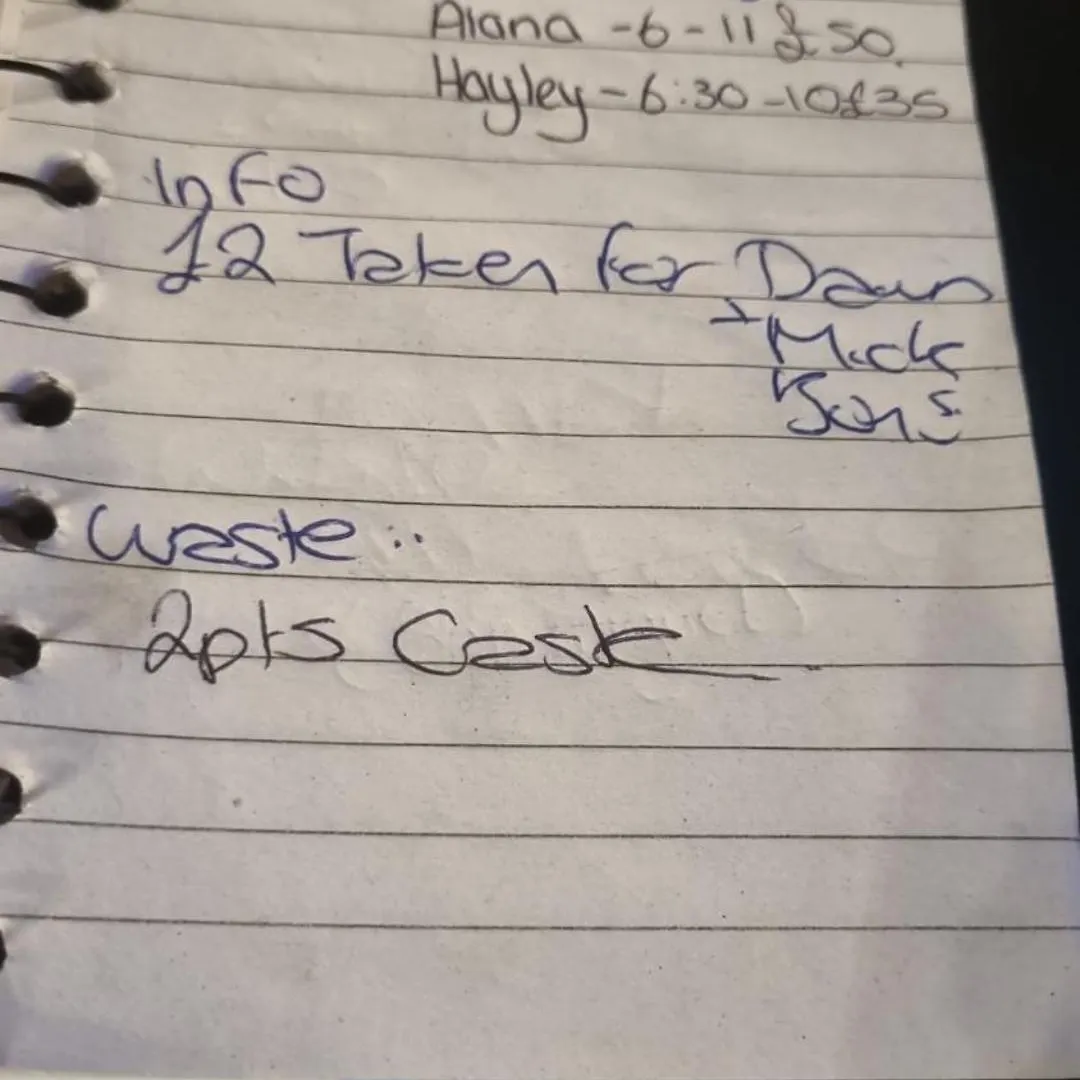 Alana - 6 - 11 £50.
Hayley - 6:30 - 10 £35
Info
£2 Taken for Dawn
+ Micks
Waste :.
2pts Cask